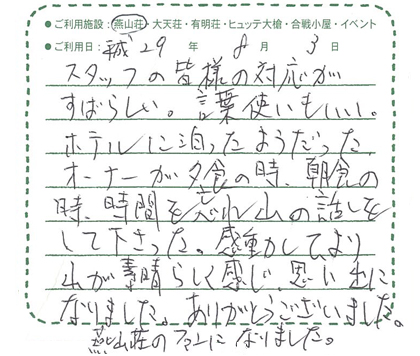 ●ご利用施設：燕山荘・大天荘・有明荘・ヒュッテ大槍・合戦小屋・イベント
●ご利用日：平成 29 年 8 月 3 日
スタッフの皆様の対応が
すばらしい。言葉使いもいい。
ホテルに泊ったようだった
オーナーが夕食の時、朝食の
時、時間を忘れ山の話しを
して下さった。感動かしてより
山が素晴らしく感じ、思い出に
なりました。ありがとうございました。
燕山荘のファンになりました。